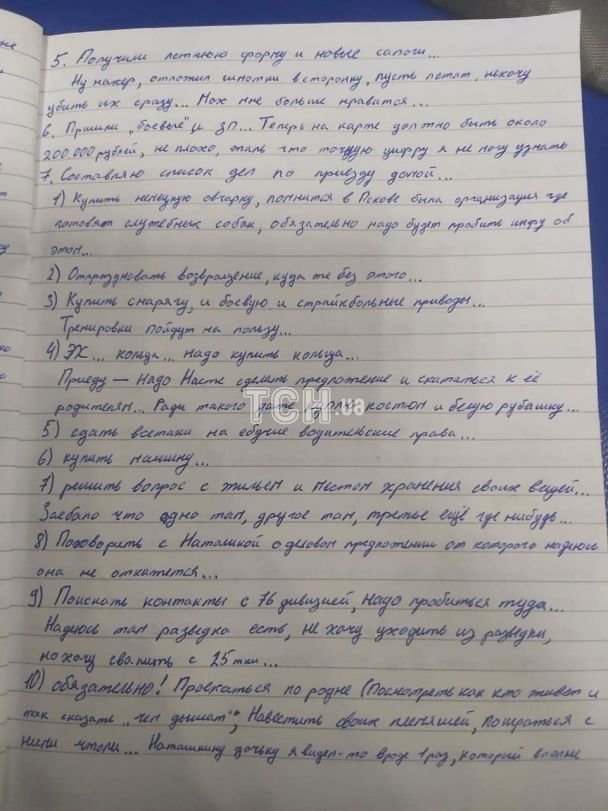 5. Получили летнюю форму и новые сапоги...
Ну нахер, отложил шмотки в сторонку, пусть лежат. нехочу
убить их сразу... Мох мне больше нравится...
6. Пришли „боевые" и ЗП... Теперь на карте должно быть около
200.000 рублей, не плохо, жаль что точную цифру я не могу узнать
7. Составляю список дел по приезду домой...
1) Купить немецкую овчарку, помнится в Пскове была организация где
готовят служебных собак, обязательно надо будет пробить инфу об
этом...
2) Отпраздновать возвращение, куда же без этого...
3) Купить снарягу, и боевую и страйкбольные приводы...
Тренировки пойдут на пользу...
4) ЭХ... кольца... надо купить кольца...
Приеду — надо Насте сделать предложение и скататься к её
родителям... Ради такого даже куплю костюм и белую рубашку...
5) сдать всетаки на ебучие водительские права...
6) купить машину...
7) решить вопрос с жильем и местом хранения своих вещей...
Заебало что одно там, другое там, третье ещё где нибудь...
8) Поговорить с Наташкой о деловом предложении от которого надеюсь
она не откажется...
9) Поискать контакты с 76 дивизией, надо пробиться туда...
Надеюсь там разведка есть, не хочу уходить из разведки,
но хочу свалить с 25тки...
10) обязательно! Проехаться по родне (Посмотреть как кто живет и
так сказать „чем дышат", Навестить своих племяшей, поиграться с
ними чтоли... Наташкину дочьку я видел-то вроде 1 раз, который вполне
ТСН.ua